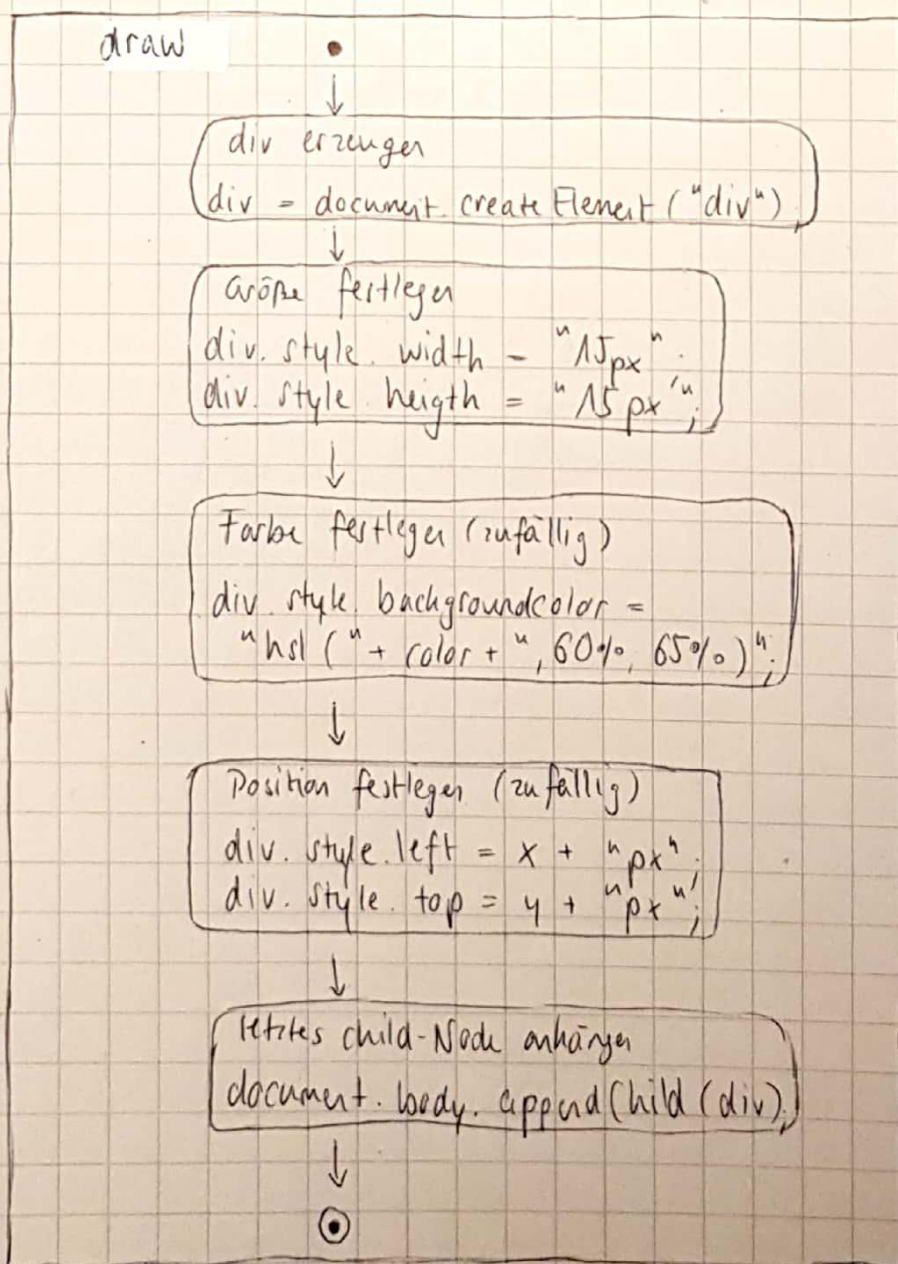 draw
div erzeugen
div = document. createElement ("div")
Größe festlegen
div. style. width = "15px";
div. style heigth = "15px";
Farbe festlegen (zufällig)
div. style. backgroundcolor =
"hsl (" + color + ", 60%, 65%)";
Position festlegen (zufällig)
div. style. left = x + "px";
div. style. top = y + "px";
letztes child-Node anhängen
document. body. appendChild (div),